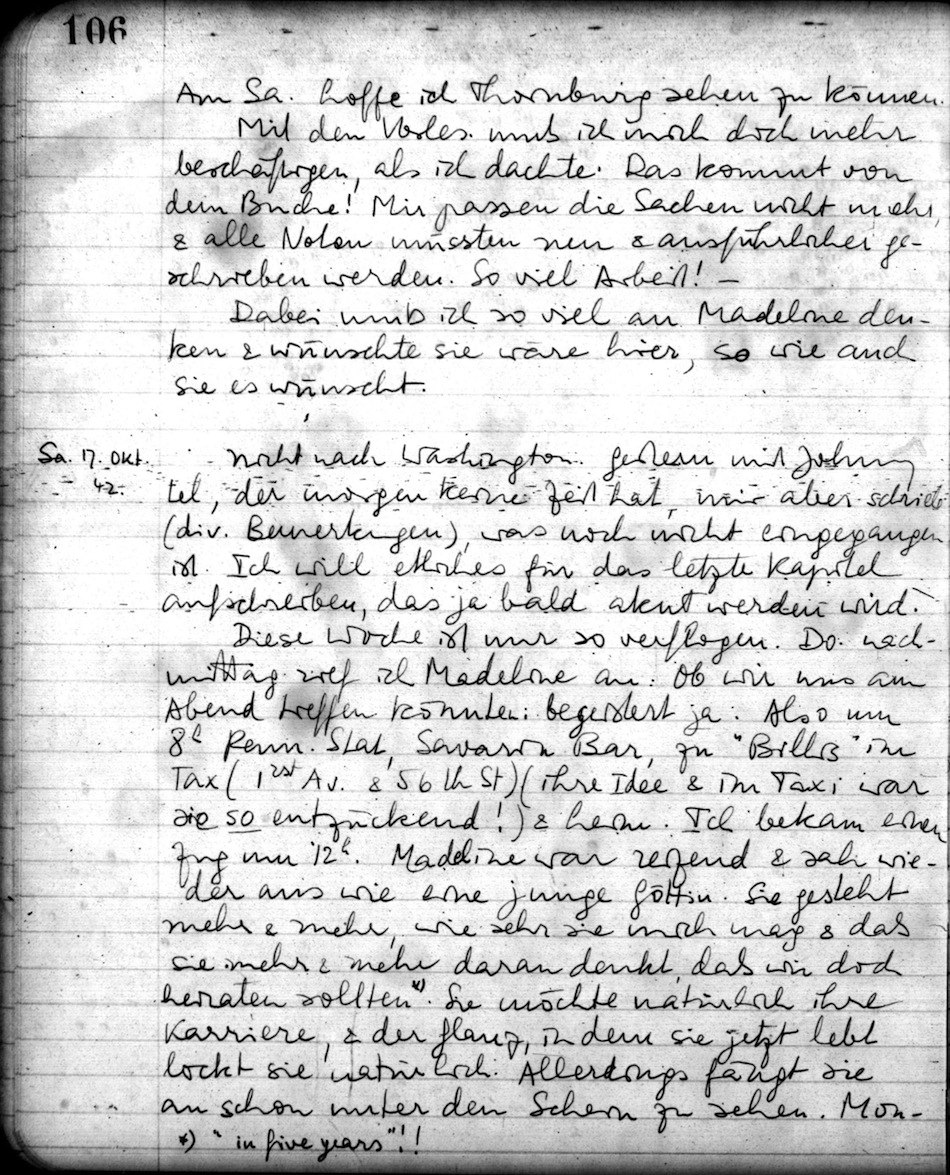 106
Am Sa. hoffe ich Thornburg sehen zu können.
Mit den Vorles. muß ich mich doch mehr
beschäftigen, als ich dachte. Das kommt von
dem Buche! Mir passen die Sachen nicht mehr,
& alle Noten müssten neu & ausführlicher ge-
schrieben werden. So viel Arbeit! –
Dabei muß ich so viel an Madeline den-
ken & wünschte sie wäre hier, so wie auch
sie es wünscht.
Sa. 17. Okt. Nicht nach Washington. Gestern mit Johnny
42. tel, der morgen keine Zeit hat, mir aber schrieb
(div. Bemerkungen), was noch nicht eingegangen
ist. Ich will etliches für das letzte Kapitel
aufschreiben, das ja bald akut werden wird.
Diese Woche ist nur so verflogen. Do. nach-
mittag rief ich Madeline an. Ob wir uns am
Abend treffen könnten: begeistert ja. Also um
8h Penn. Stat, Savarin Bar, zu "Bill's" im
Tax (1st Av. & 56th St) (ihre Idee & im Taxi war
sie so entzückend!) & heim. Ich bekam einen
Zug um 12h. Madeline war reizend & sah wie-
der aus wie eine junge Göttin. Sie gesteht
mehr & mehr, wie sehr sie mich mag & daß
sie mehr & mehr daran denkt, daß wir doch
heiraten sollten*). Sie möchte natürlich ihre
Karriere, & der Glanz, in dem sie jetzt lebt
lockt sie natürlich. Allerdings fängt sie
an schon unter den Schein zu sehen. Mon-
*) "in five years"!!